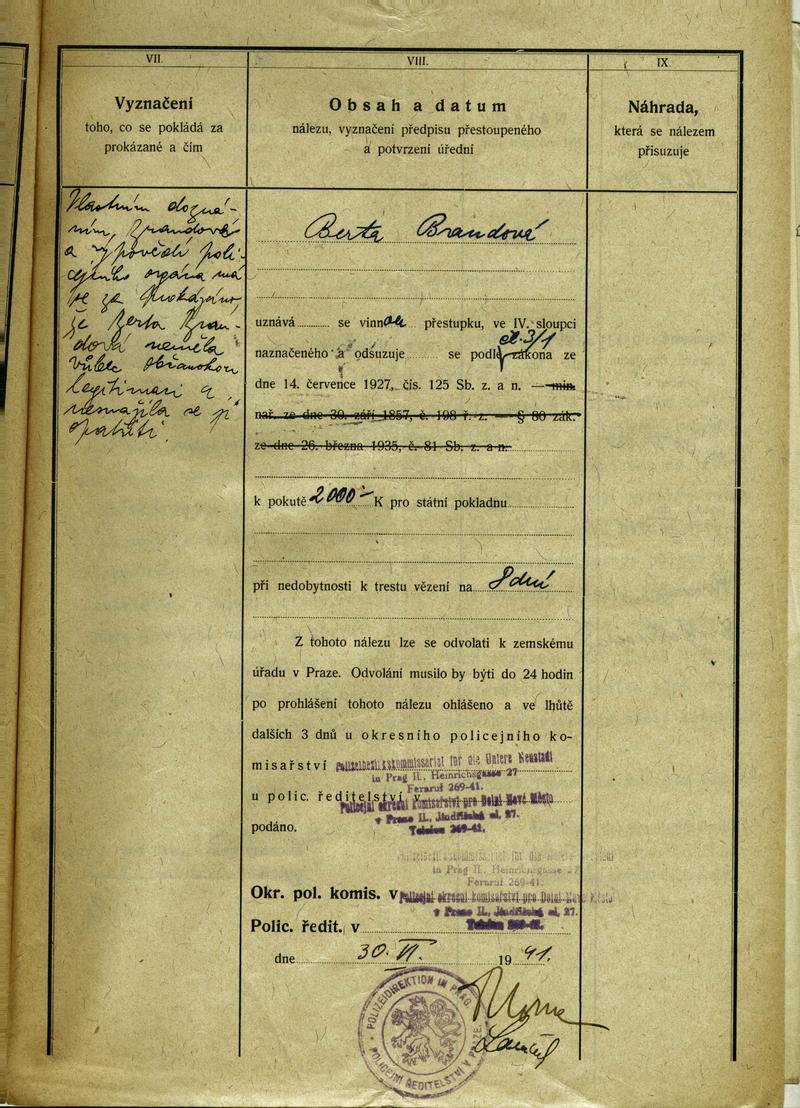 VII.
Vyznačení
toho, co se pokládá za
prokázané a čím
VIII.
Obsah a datum
nálezu, vyznačení předpisu přestoupeného
a potvrzení úřední
IX.
Náhrada,
která se nálezem
přisuzuje
Vlastním dozná-
ním Brandové
a výpovědí poli-
cejního orgána má
se za prokázáno,
že Berta Bran-
dová neměla
vůbec občanskou
legitimaci a
Berta Brandová
uznává se vinnou přestupku, ve IV. sloupci
čl. 3/1
naznačeného a odsuzuje se podle zákona ze
dne 14. července 1927, čís. 125 Sb. z. a n. — min.
nař. ze dne 30. září 1857, č. 198 ř. z. — § 80 zák.
ze dne 26. března 1935, č. 81 Sb. z. a n.
k pokutě 2000 — K pro státní pokladnu
při nedobytnosti k trestu vězení na 8 dnů
Z tohoto nálezu lze se odvolati k zemskému
úřadu v Praze. Odvolání musilo by býti do 24 hodin
po prohlášení tohoto nálezu ohlášeno a ve lhůtě
dalších 3 dnů u okresního policejního ko-
misařství Polizeibezirkskommissariat für die Untere Neustadt
in Prag II., Heinrichsgasse 27
Fernruf 269-41.
u polic. ředitelství v Policejní okresní komisařství pro Dolní Nové Město
v Praze II., Jindřišská ul. 27.
podáno. Telefon 269-41.
Polizeibezirkskommissariat für die Untere Neustadt
in Prag II., Heinrichsgasse 27
Fernruf 269-41.
Okr. pol. komis. v Policejní okresní komisařství pro Dolní Nové Město
v Praze II., Jindřišská ul. 27.
Polic. ředit. v Telefon 269-41.
dne 30. VI. 1941.
POLIZEIDIREKTION IN PRAG
POLICEJNÍ ŘEDITELSTVÍ V PRAZE